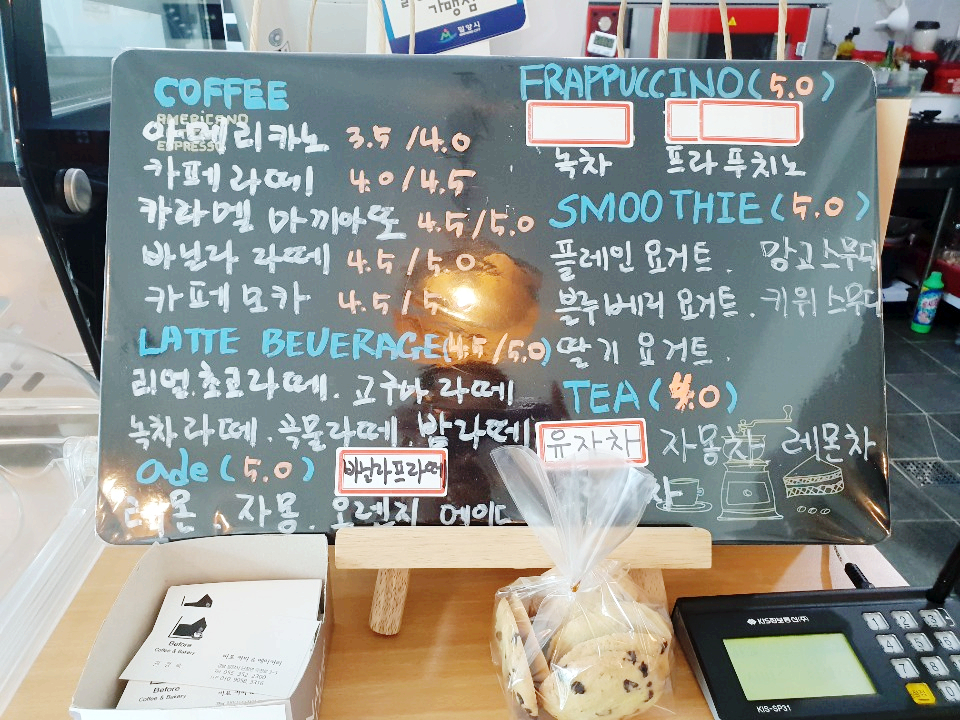 가맹점
밀양시
COFFEE
AMERICANO
ESPRESSO
아메리카노 3.5/4.0
카페라떼 4.0/4.5
카라멜 마끼아또 4.5/5.0
바닐라 라떼 4.5/5.0
카페모카 4.5/5.0
LATTE BEUVERAGE(4.5/5.0)
리얼초코라떼. 고구마라떼
녹차라떼.곡물라떼.밤라떼
ade(5.0)
바닐라프라페
레몬, 자몽. 오렌지 에이드
FRAPPUCCINO(5.0)
녹차 프라푸치노
SMOOTHIE(5.0)
플레인 요거트. 망고스무디
블루베리 요거트. 키위스무디
딸기 요거트.
TEA(4.0)
유자차 자몽차 레몬차
차
Before
Coffee & Bakery
Before
Coffee & Bakery
KIS정보통신(주)
KIS-SP31
1 2 3
4 5 6
7 8 9
0